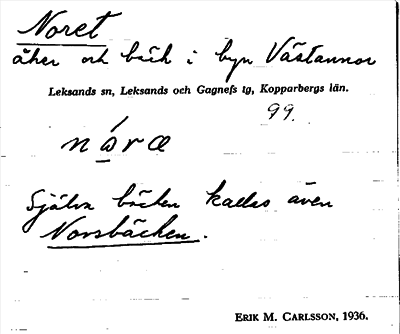 Noret
åker och bäck i byn Västannor
Leksands sn, Leksands och Gagnefs tg, Kopparbergs län.
99.
nó̲ræ
Själva bäcken kallas även
Norsbäcken.
ERIK M. CARLSSON, 1936.